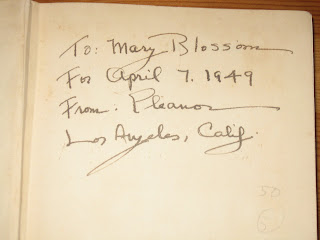 To: Mary Blossom
For April 7, 1949
From: Eleanor
Los Angeles, Calif.